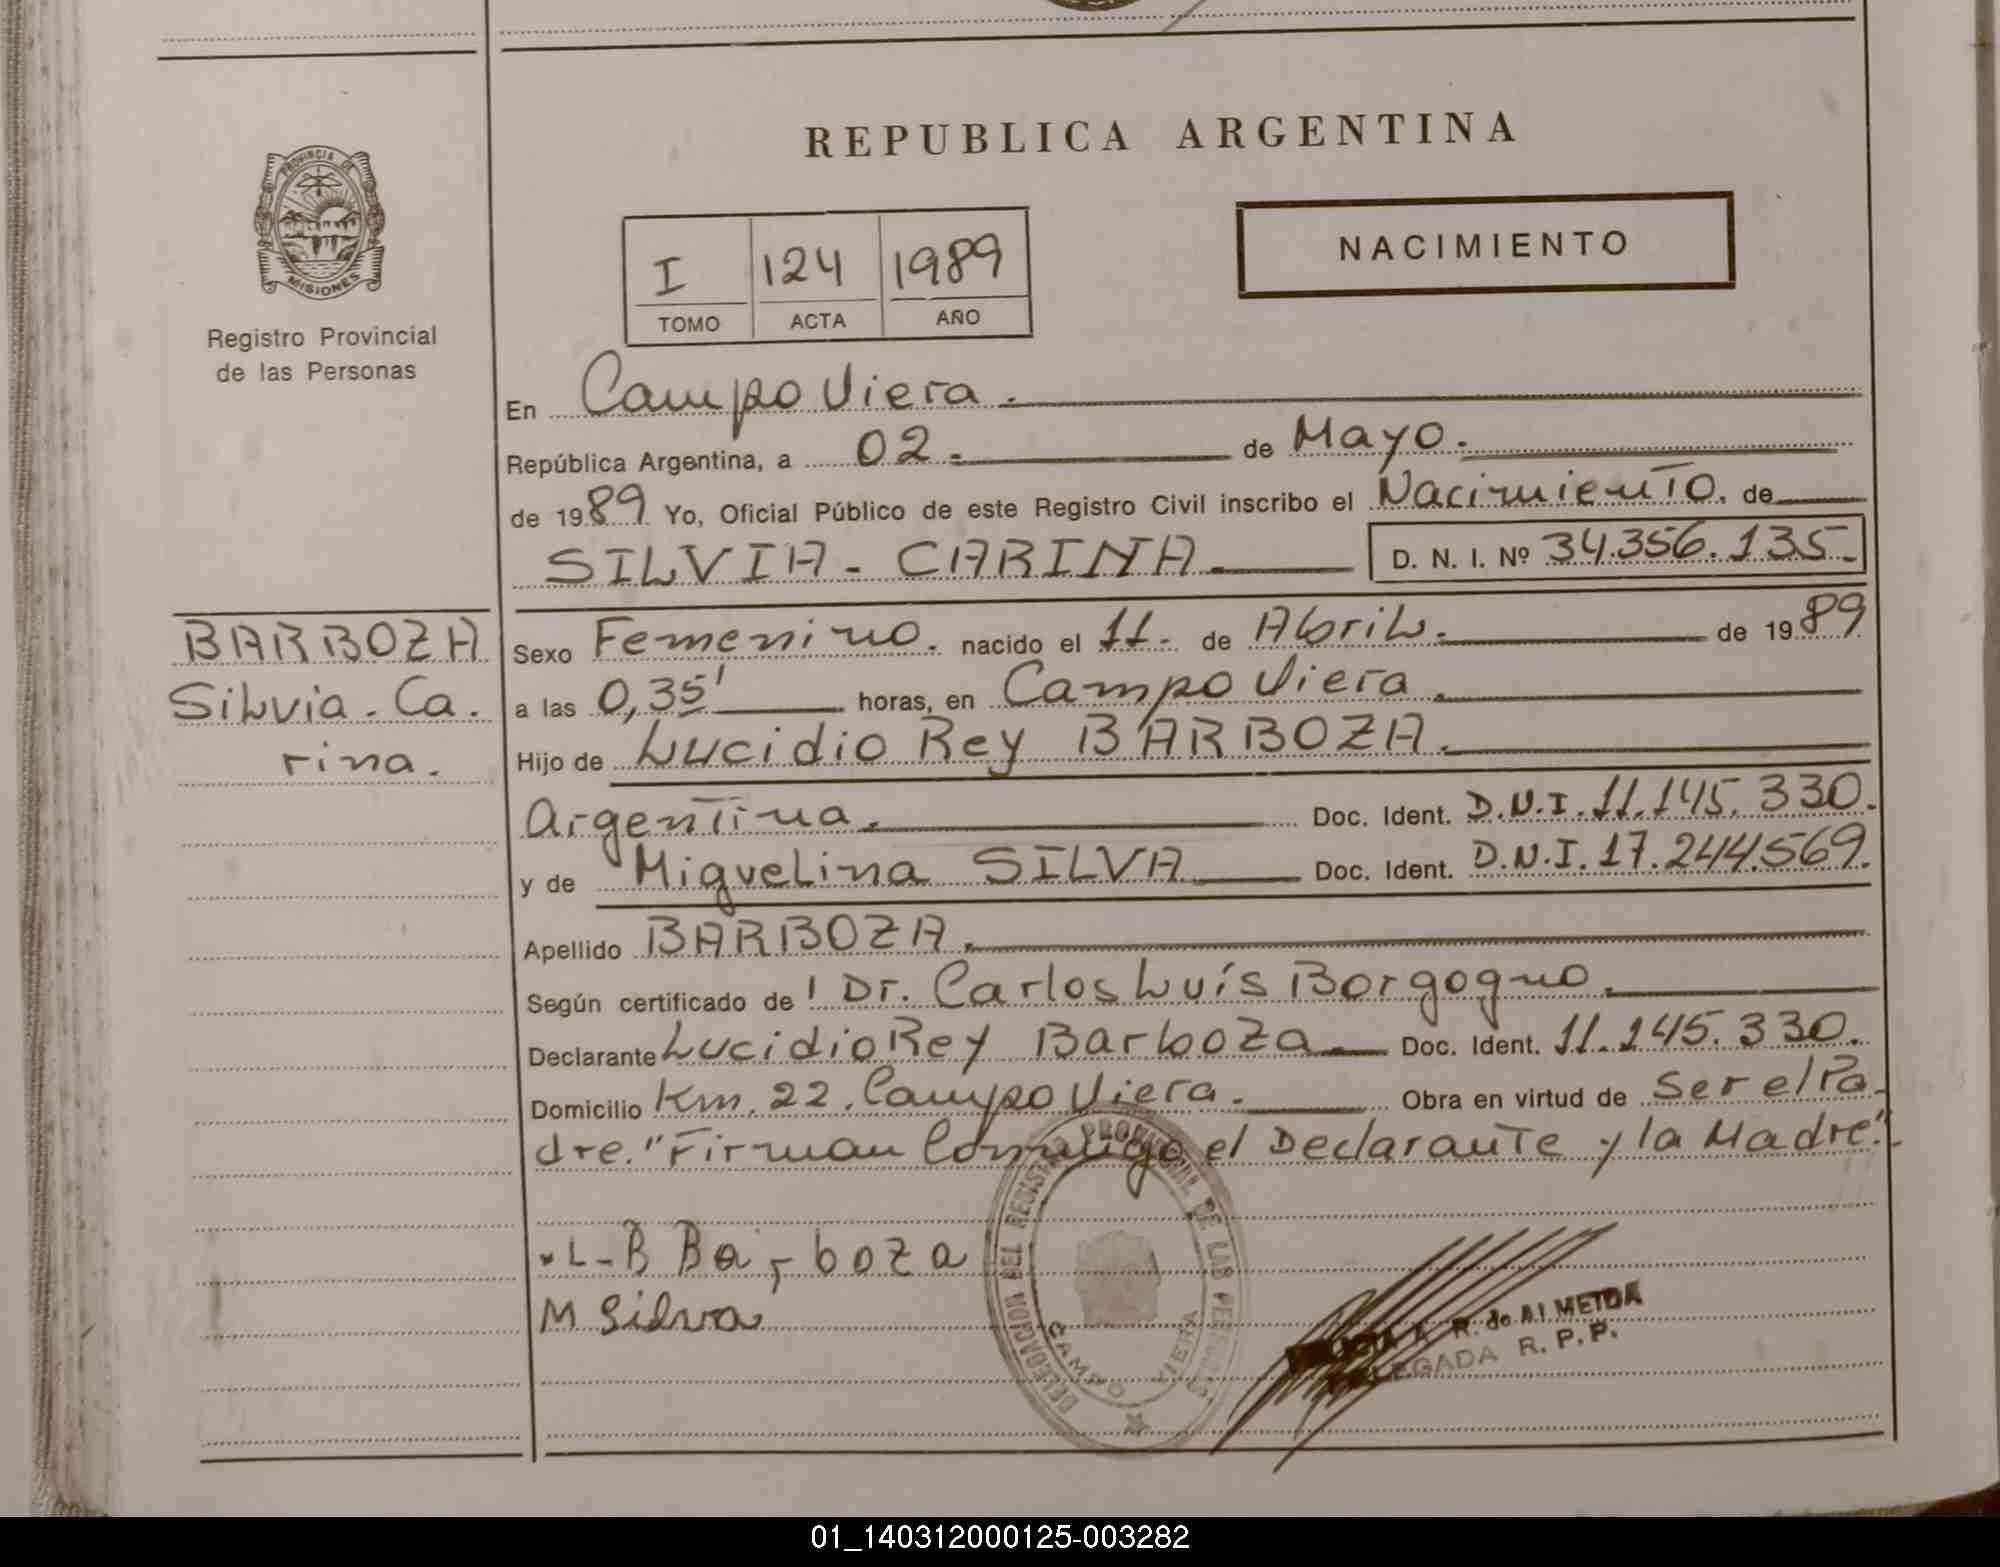 REPUBLICA ARGENTINA
PROVINCIA DE
MISIONES
Registro Provincial
de las Personas
I 124 1989
TOMO ACTA AÑO
NACIMIENTO
En Campo Viera.
República Argentina, a 02. de Mayo.
de 1989 Yo, Oficial Público de este Registro Civil inscribo el Nacimiento. de
SILVIA - CARINA D. N. I. Nº 34.356.135
BARBOZA
Silvia. Ca.
rina.
Sexo Femenino. nacido el 11. de Abril. de 1989
a las 0,35' horas, en Campo Viera.
Hijo de Lucidio Rey BARBOZA.
Argentina. Doc. Ident. D.N.I. 11.145.330.
y de Miguelina SILVA Doc. Ident. D.N.I. 17.244.569.
Apellido BARBOZA.
Según certificado de Dr. Carlos Luís Borgogno.
Declarante Lucidio Rey Barboza Doc. Ident. 11.145.330.
Domicilio Km. 22. Campo Viera. Obra en virtud de Ser el Pa-
dre. "Firman Conmigo el Declarante y la Madre."
L-B Barboza
M Silva
DELEGACION DEL REGISTRO PROVINCIAL DE LAS PERSONAS
CAMPO VIERA
R. de ALMEIDA
DELEGADA R. P. P.
01_140312000125-003282